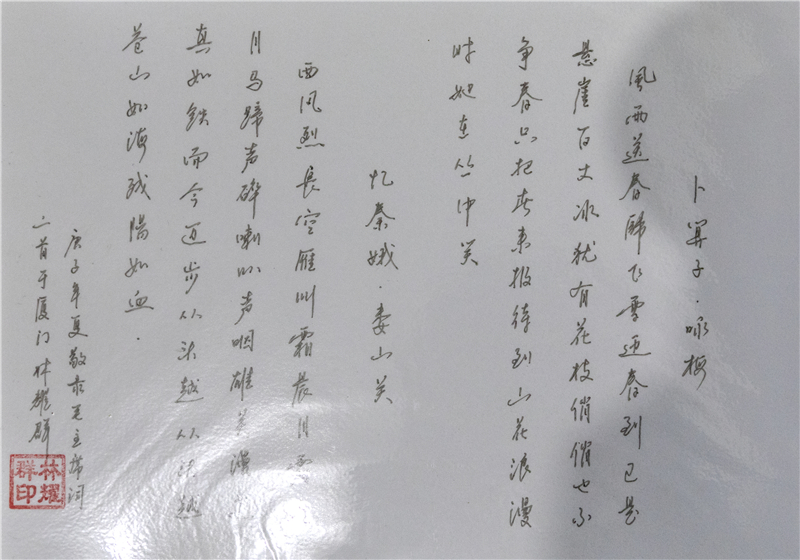 卜算子·咏梅
風雨送春歸飞雪迎春到已是
悬崖百丈冰犹有花枝俏俏也不
争春只把春来报待到山花浪漫
时她在丛中笑
忆秦娥·娄山关
西风烈長空雁叫霜晨月霜
月马蹄声碎喇叭声咽雄关漫
真如铁而今迈步从头越从头越
苍山如海残陽如血.
庚子年夏敬录毛主席词
二首于厦门林耀群
林耀群印